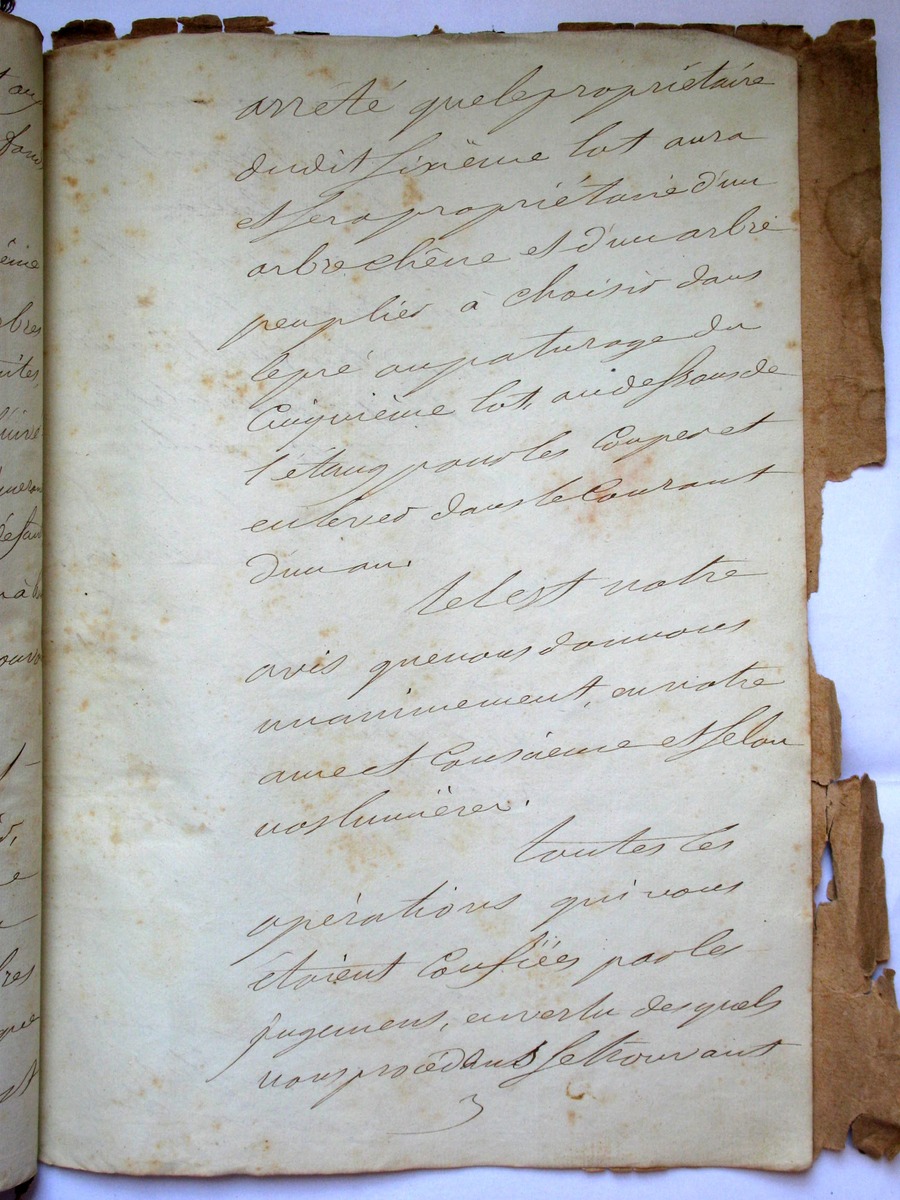 arrêté que le propriétaire
dudit sixième lot aura
et sera propriétaire d'un
arbre chêne et d'un arbre
peuplier à choisir dans
le pré ou paturage du
Cinquième lot, au dessous de
l'étang pour les Couper et
enlever dans le Courant
d'un an.
tel est notre
avis que nous donnons
unanimement, en notre
ame et Conscience et selon
nos lumières.
toutes les
opérations qui nous
étoient Confiées par les
jugemens, en vertu desquels
nous procédons se trouvant
3